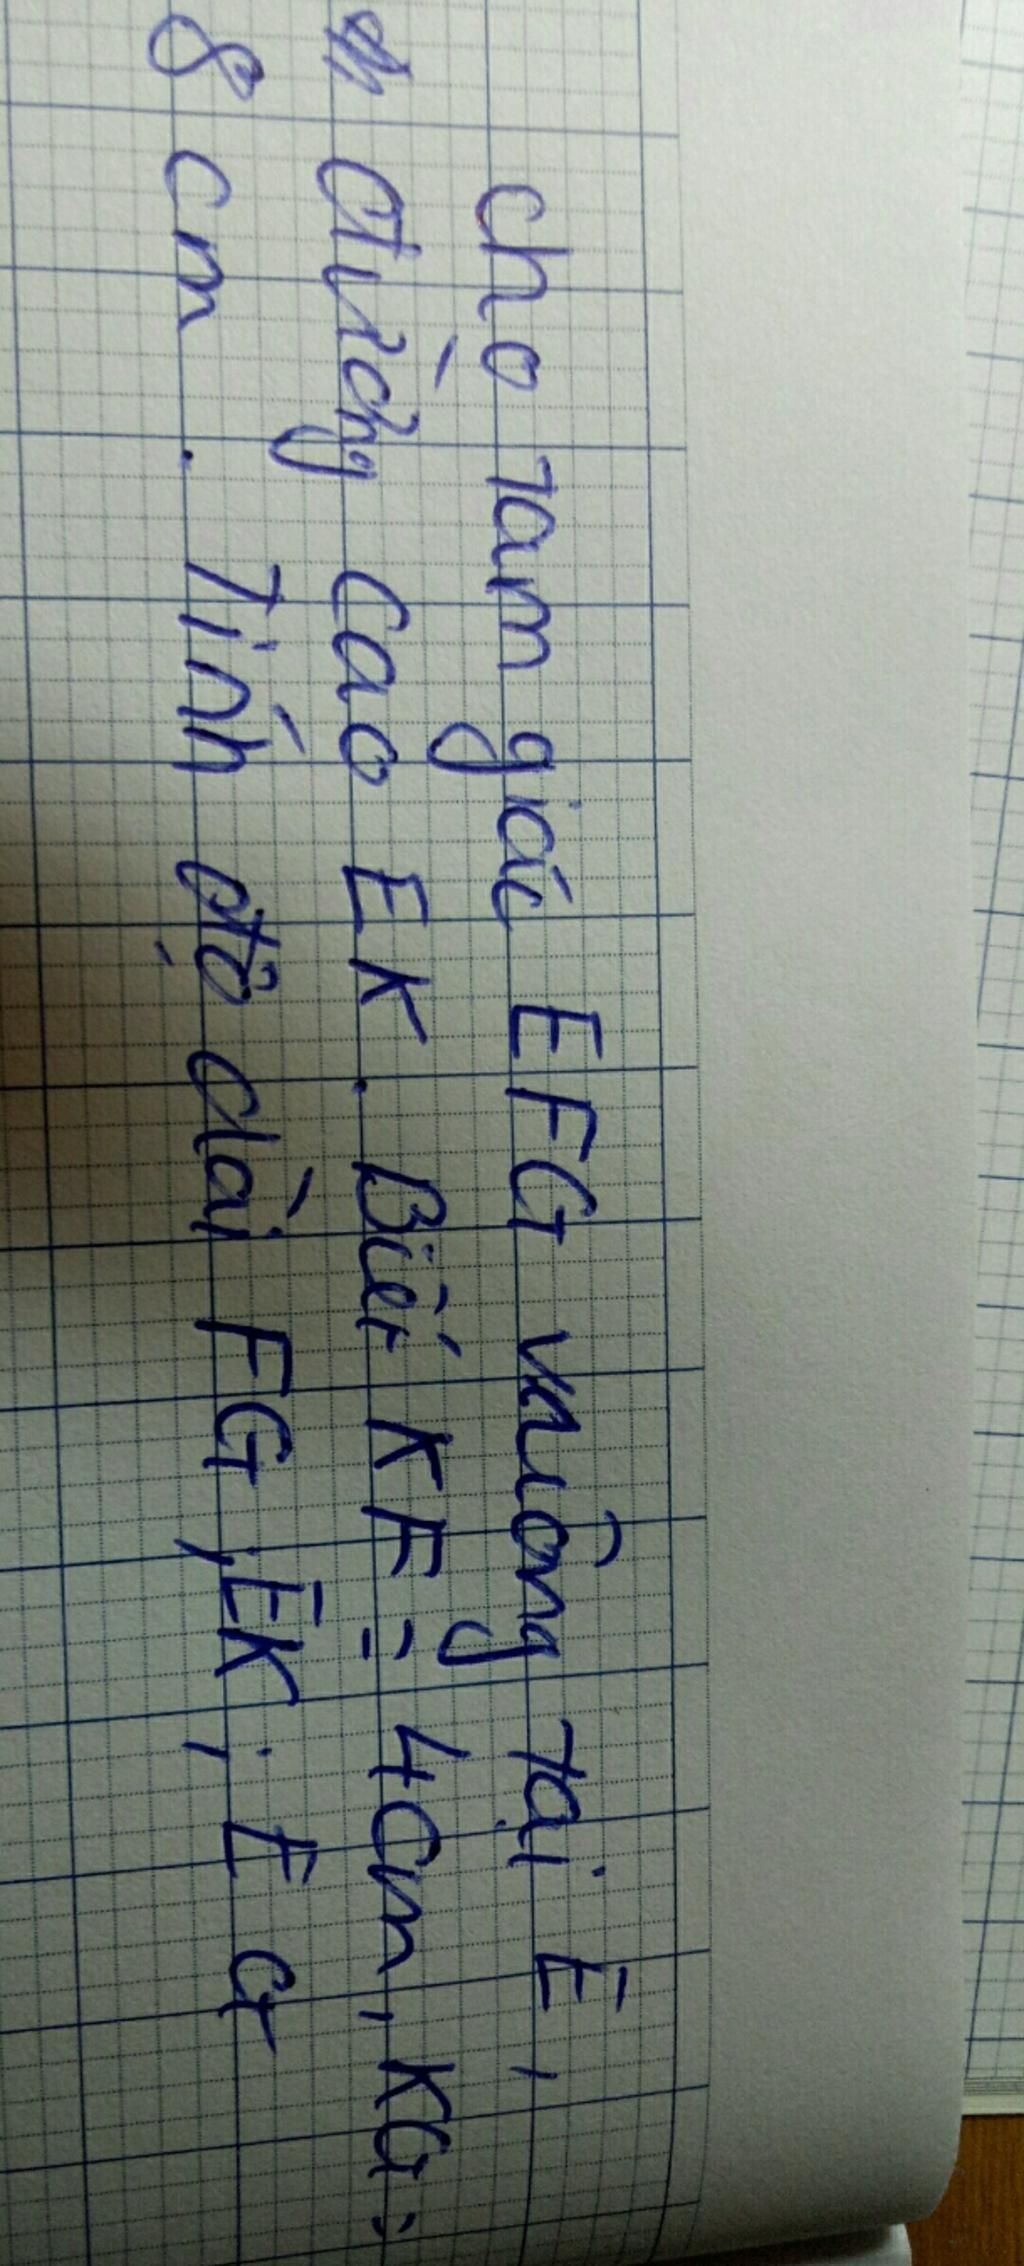 cho tam giác EFG vuông tại E,
đường cao EK. Biết KF = 4cm, KG =
8 cm. Tính độ dài FG, EK; EG